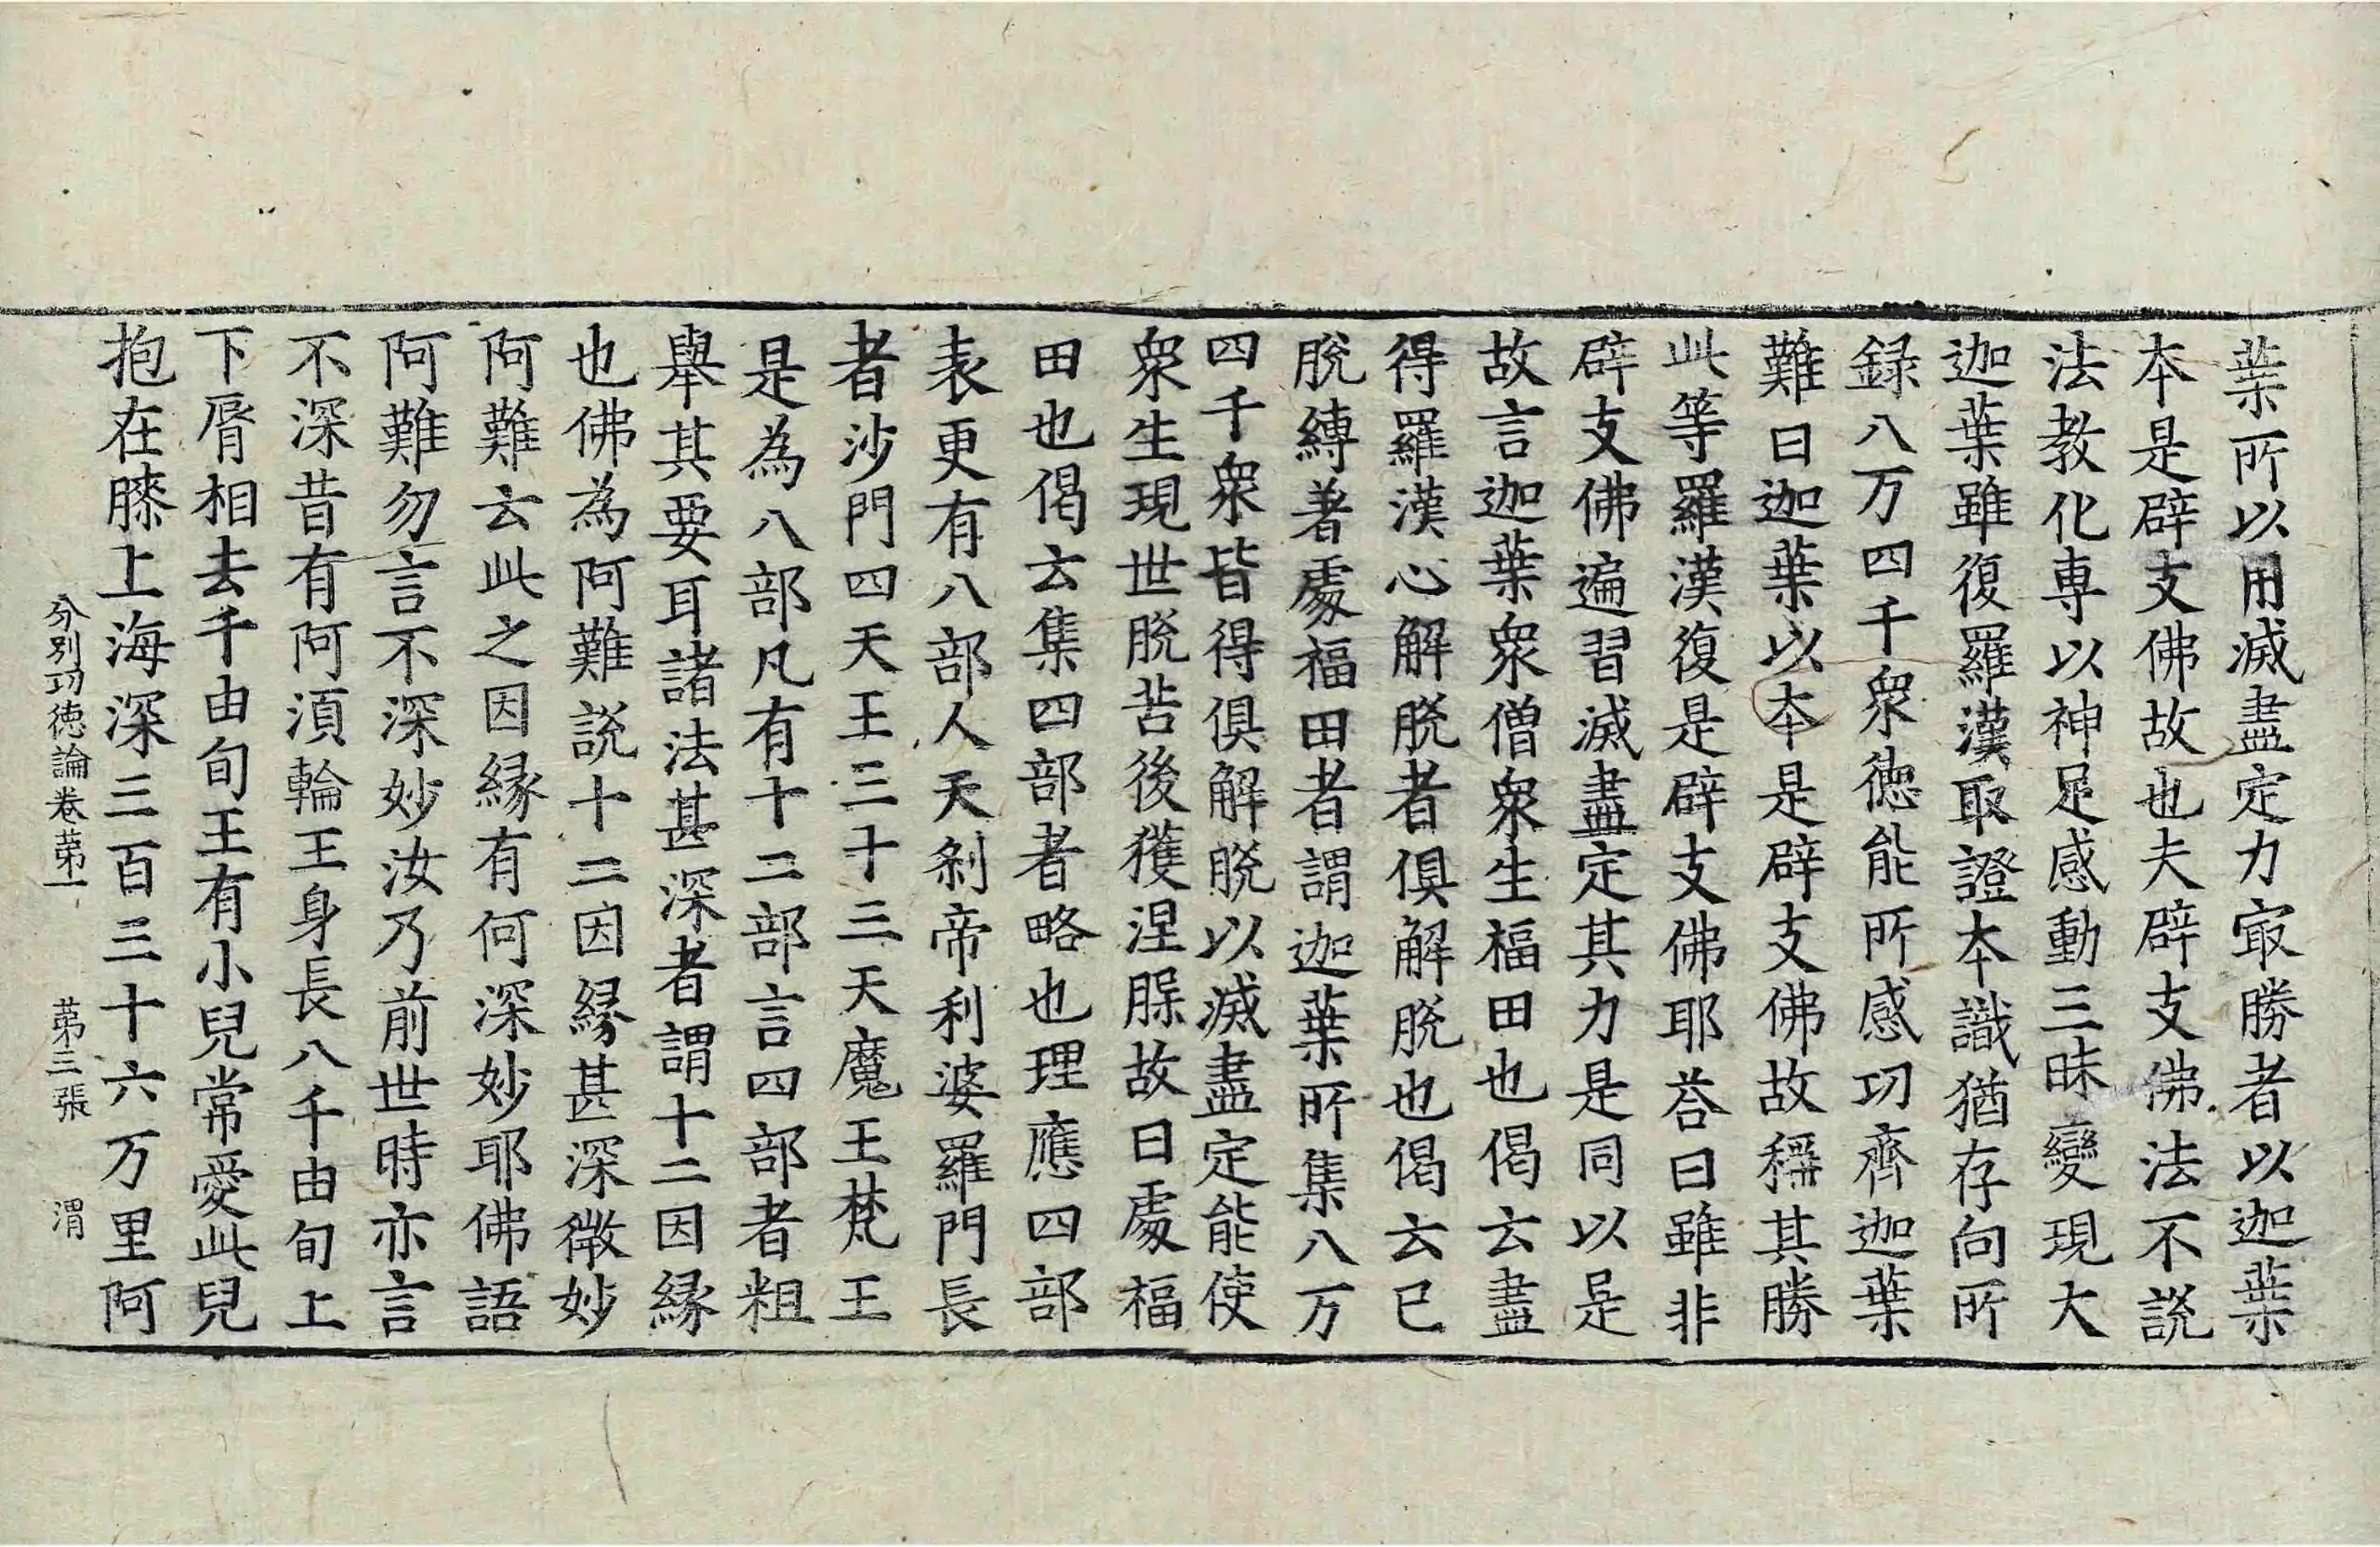 葉所以用滅盡定力冣勝者以迦葉
本是辟支佛故也夫辟支佛法不說
法教化専以神足感動三昧變現大
迦葉雖復羅漢取證本識猶存向所
録八万四千衆德能所感功齊迦葉
難曰迦葉以本是辟支佛故稱其勝
此等羅漢復是辟支佛耶荅曰雖非
辟支佛遍習滅盡定其力是同以是
故言迦葉衆僧衆生福田也偈云盡
得羅漢心解脫者俱解脫也偈云已
脫縛著處福田者謂迦葉所集八万
四千衆皆得俱解脫以滅盡定能使
衆生現世脫苦後獲涅槃故曰處福
田也偈云集四部者略也理應四部
表更有八部人天剎帝利婆羅門長
者沙門四天王三十三天魔王梵王
是為八部凡有十二部言四部者粗
舉其要耳諸法甚深者謂十二因緣
也佛為阿難說十二因緣甚深微妙
阿難云此之因緣有何深妙耶佛語
阿難勿言不深妙汝乃前世時亦言
不深昔有阿須輪王身長八千由旬上
下脣相去千由旬王有小兒常愛此兒
抱在膝上海深三百三十六万里阿
分別功德論卷苐一 苐三張 渭